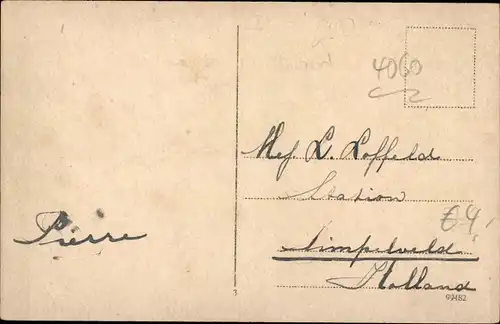 4060
Mej. L. Loffeld
Station
€4,
Simpelveld
Holland
Pierre
3
9482